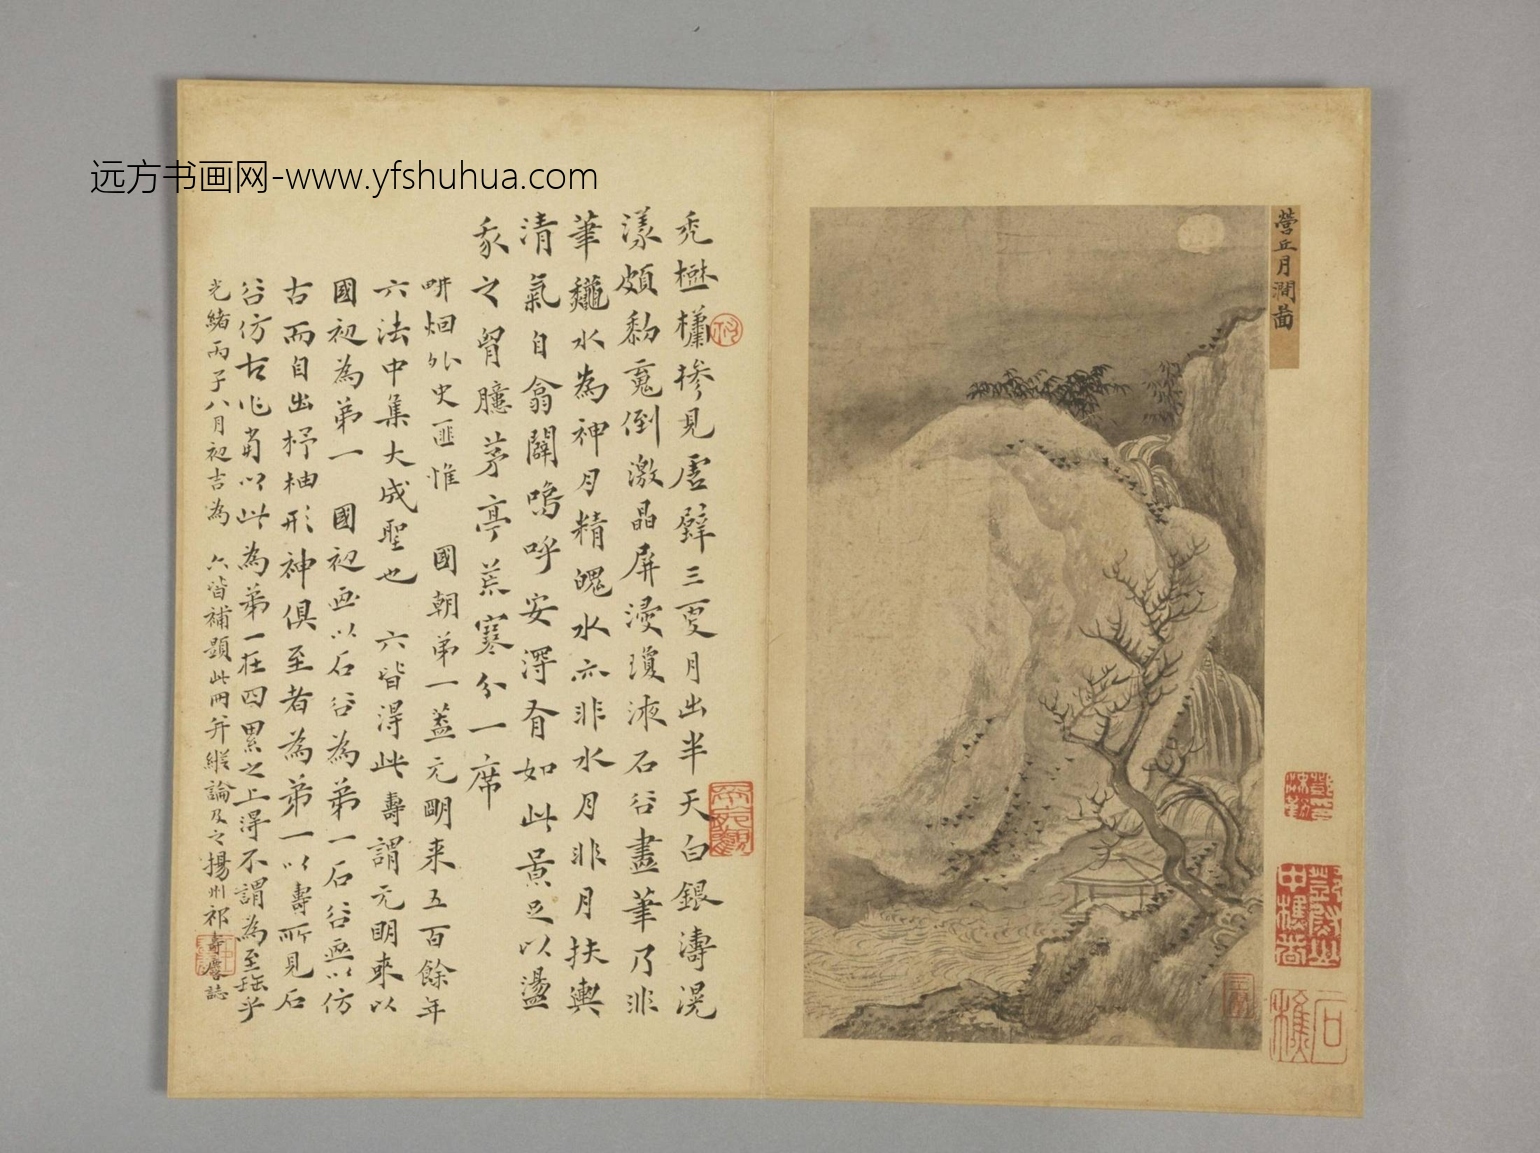 远方书画网-www.yfshuhua.com
營丘月澗啚
禿櫯櫹摻見虛壁三更月出半天白銀濤滉
漾頗黎寬倒激晶屏浸瓊液石谷畫筆乃非
筆龝水為神月精魄水亦非水月非月扶輿
清氣自翕闢嗚呼安得有如此景足以盪
我之胷臆茅亭荒寒分一席
畊烟外史匪惟 國朝弟一蓋元明来五百餘年
六法中集大成聖也 六皆得此壽謂元明来以
國初為弟一 國初画以石谷為弟一石谷画以仿
古而自出杼柚形神俱至者為弟一以壽所見石
谷仿古作當以此為弟一在四累之上得不謂為至珤乎
光緒丙子八月初吉為 六皆補題此冊并縱論及之揚州祁壽麐誌